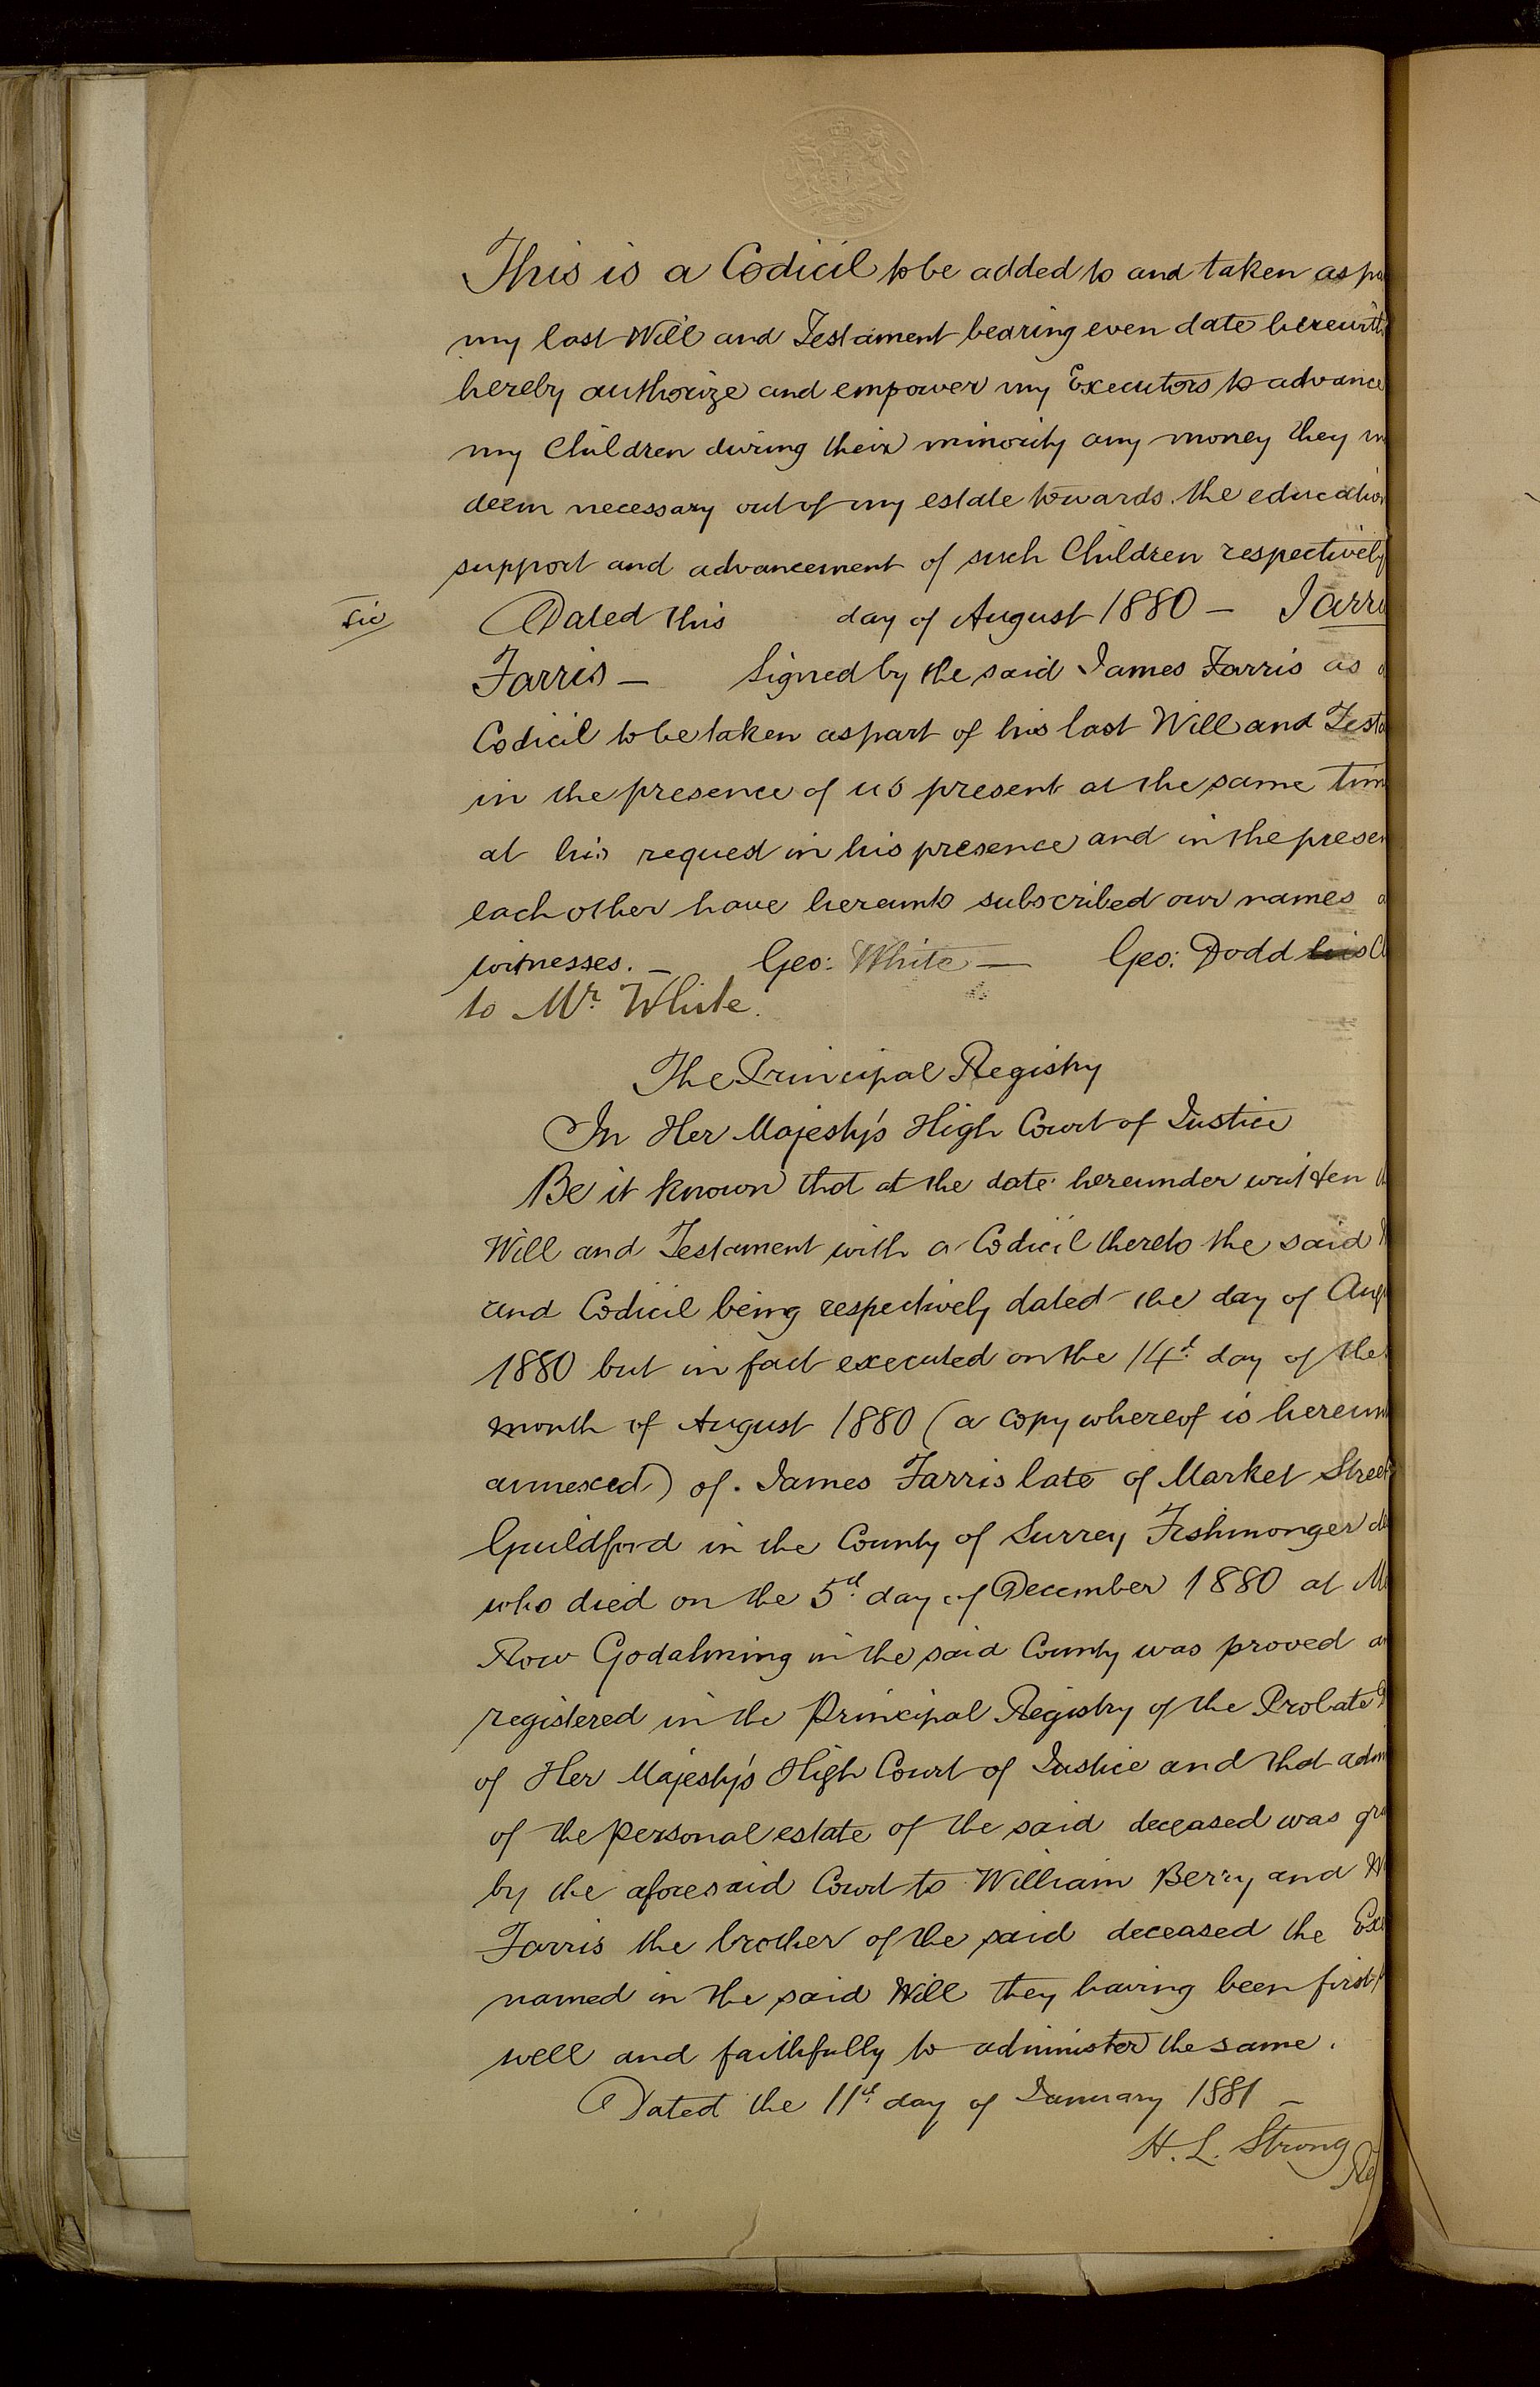 This is a Codicil to be added to and taken as
my last Will and Testament bearing even date herewith
hereby authorize and empower my Executors to advance
my Children during their minority any money they
deem necessary out of my estate towards the education
support and advancement of such Children respectively
Sic Dated this day of August 1880 —
Farris — Signed by the said James Farris as
Codicil to be taken as part of his last Will and
in the presence of us present at the same
at his request in his presence and in the
each other have hereunto subscribed our names
witnesses. — Geo: White — Geo: Dodd
to Mr. White.
The Principal Registry
In Her Majesty's High Court of Justice
Be it known that at the date hereunder written
Will and Testament with a Codicil thereto the said
and Codicil being respectively dated the day of
1880 but in fact executed on the 14th day of the
month of August 1880 (a copy whereof is
annexed) of James Farris late of Market Street
Guildford in the County of Surrey Fishmonger
who died on the 5th day of December 1880 at
Row Godalming in the said County was proved
registered in the Principal Registry of the Probate
of Her Majesty's High Court of Justice and that
of the personal estate of the said deceased was
by the aforesaid Court to William Berry and
Farris the brother of the said deceased the
named in the said Will they having been first
well and faithfully to administer the same.
Dated the 11th day of January 1881 —
H. L. Strong